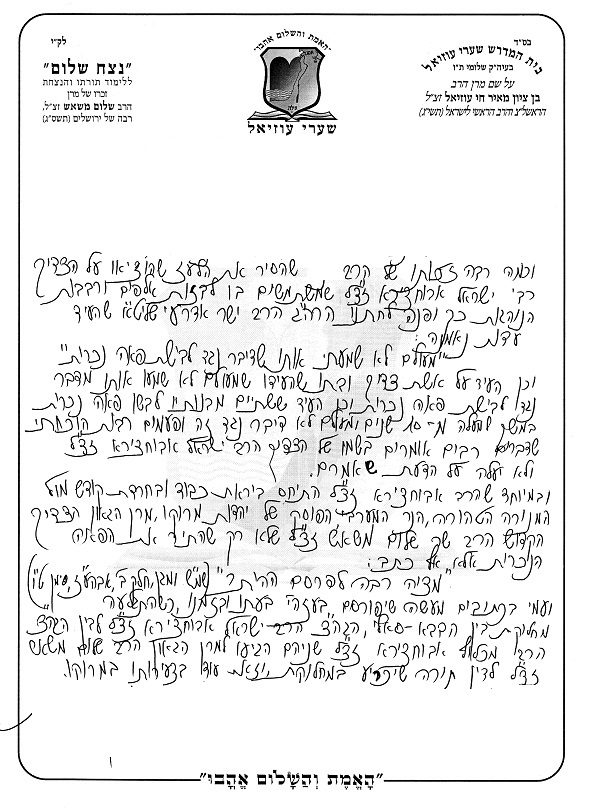 בס"ד
בית המדרש שערי עוזיאל
בעיה"ק שלומי ת"ו
על שם מרן הרב
בן ציון מאיר חי עוזיאל זצ"ל
הראשל"צ והרב הראשי לישראל (תשי"ג)
"האמת והשלום אהבו"
שערי עוזיאל
לק"י
"נצח שלום"
ללימוד תורתו והנצחת
זכרו של מרן
הרב שלום משאש זצ"ל,
רבה של ירושלים (תשס"ג)
וכמה רבה זכותו של הרב שהסיר את הלעז שהוציאו על הצדיק
רבי ישראל אבוחצירא זצ"ל שמשתמשים בו לבזות אלפים ורבבות
הנוהגות כך ופנה לחתנו הרה"ג הרב ישר אדרעי שליט"א שהעיד
עדות נאמנה:
"מעולם לא שמעתי אותו שדיבר נגד לבישת פאה נכרית"
וכן העיד על אשת צדיק ובתו שהעידו שמעולם לא שמעו אותו מדבר
נגד לבישת פאה נכרית וכן העיד ששתיים מבנותיו לבשו פאה נכרית
במשך למעלה מ-10 שנים ומעולם לא דיבר נגד זה ופעמים רבות הוכחתי
שדברים רבים אומרים בשמו של הצדיק הרבי ישראל אבוחצירא זצ"ל
ולא עלה על הדעת שאמרם.
ובמיוחד שהרב אבוחצירא זצ"ל התיחס ביראת כבוד ובחרדת קודש מול
המנורה הטהורה, הנר המערבי הפוסק של יהדות מרוקו, מרן הגאון הצדיק
הקדוש הרב שלום משאש זצ"ל שלא רק שהתיר את הפאה
הנוכרית אלא, אף כתב:
"מציה רבה לפרסם ההיתר" (שמ"ש ומגן, חלק ב', אבהע"ז, סימן ט"ו)
ועמי בכתובים מעשה שיפורסם בעזה"י בעתו ובזמנו, כשהתגלעה
מחלוקת בין הבבא-סאלי, הגה"צ הרב ישראל אבוחצירא זצ"ל לבין הגה"צ
הרבי מכלוף אבוחצירא זצ"ל שניהם הגיעו למרן הגאון הרב שלום משאש
זצ"ל לדין תורה שיכריע במחלוקת, וזאת עוד בצעירותו במרוקו.
"הָאֱמֶת וְהַשָּׁלוֹם אֱהָבוּ"